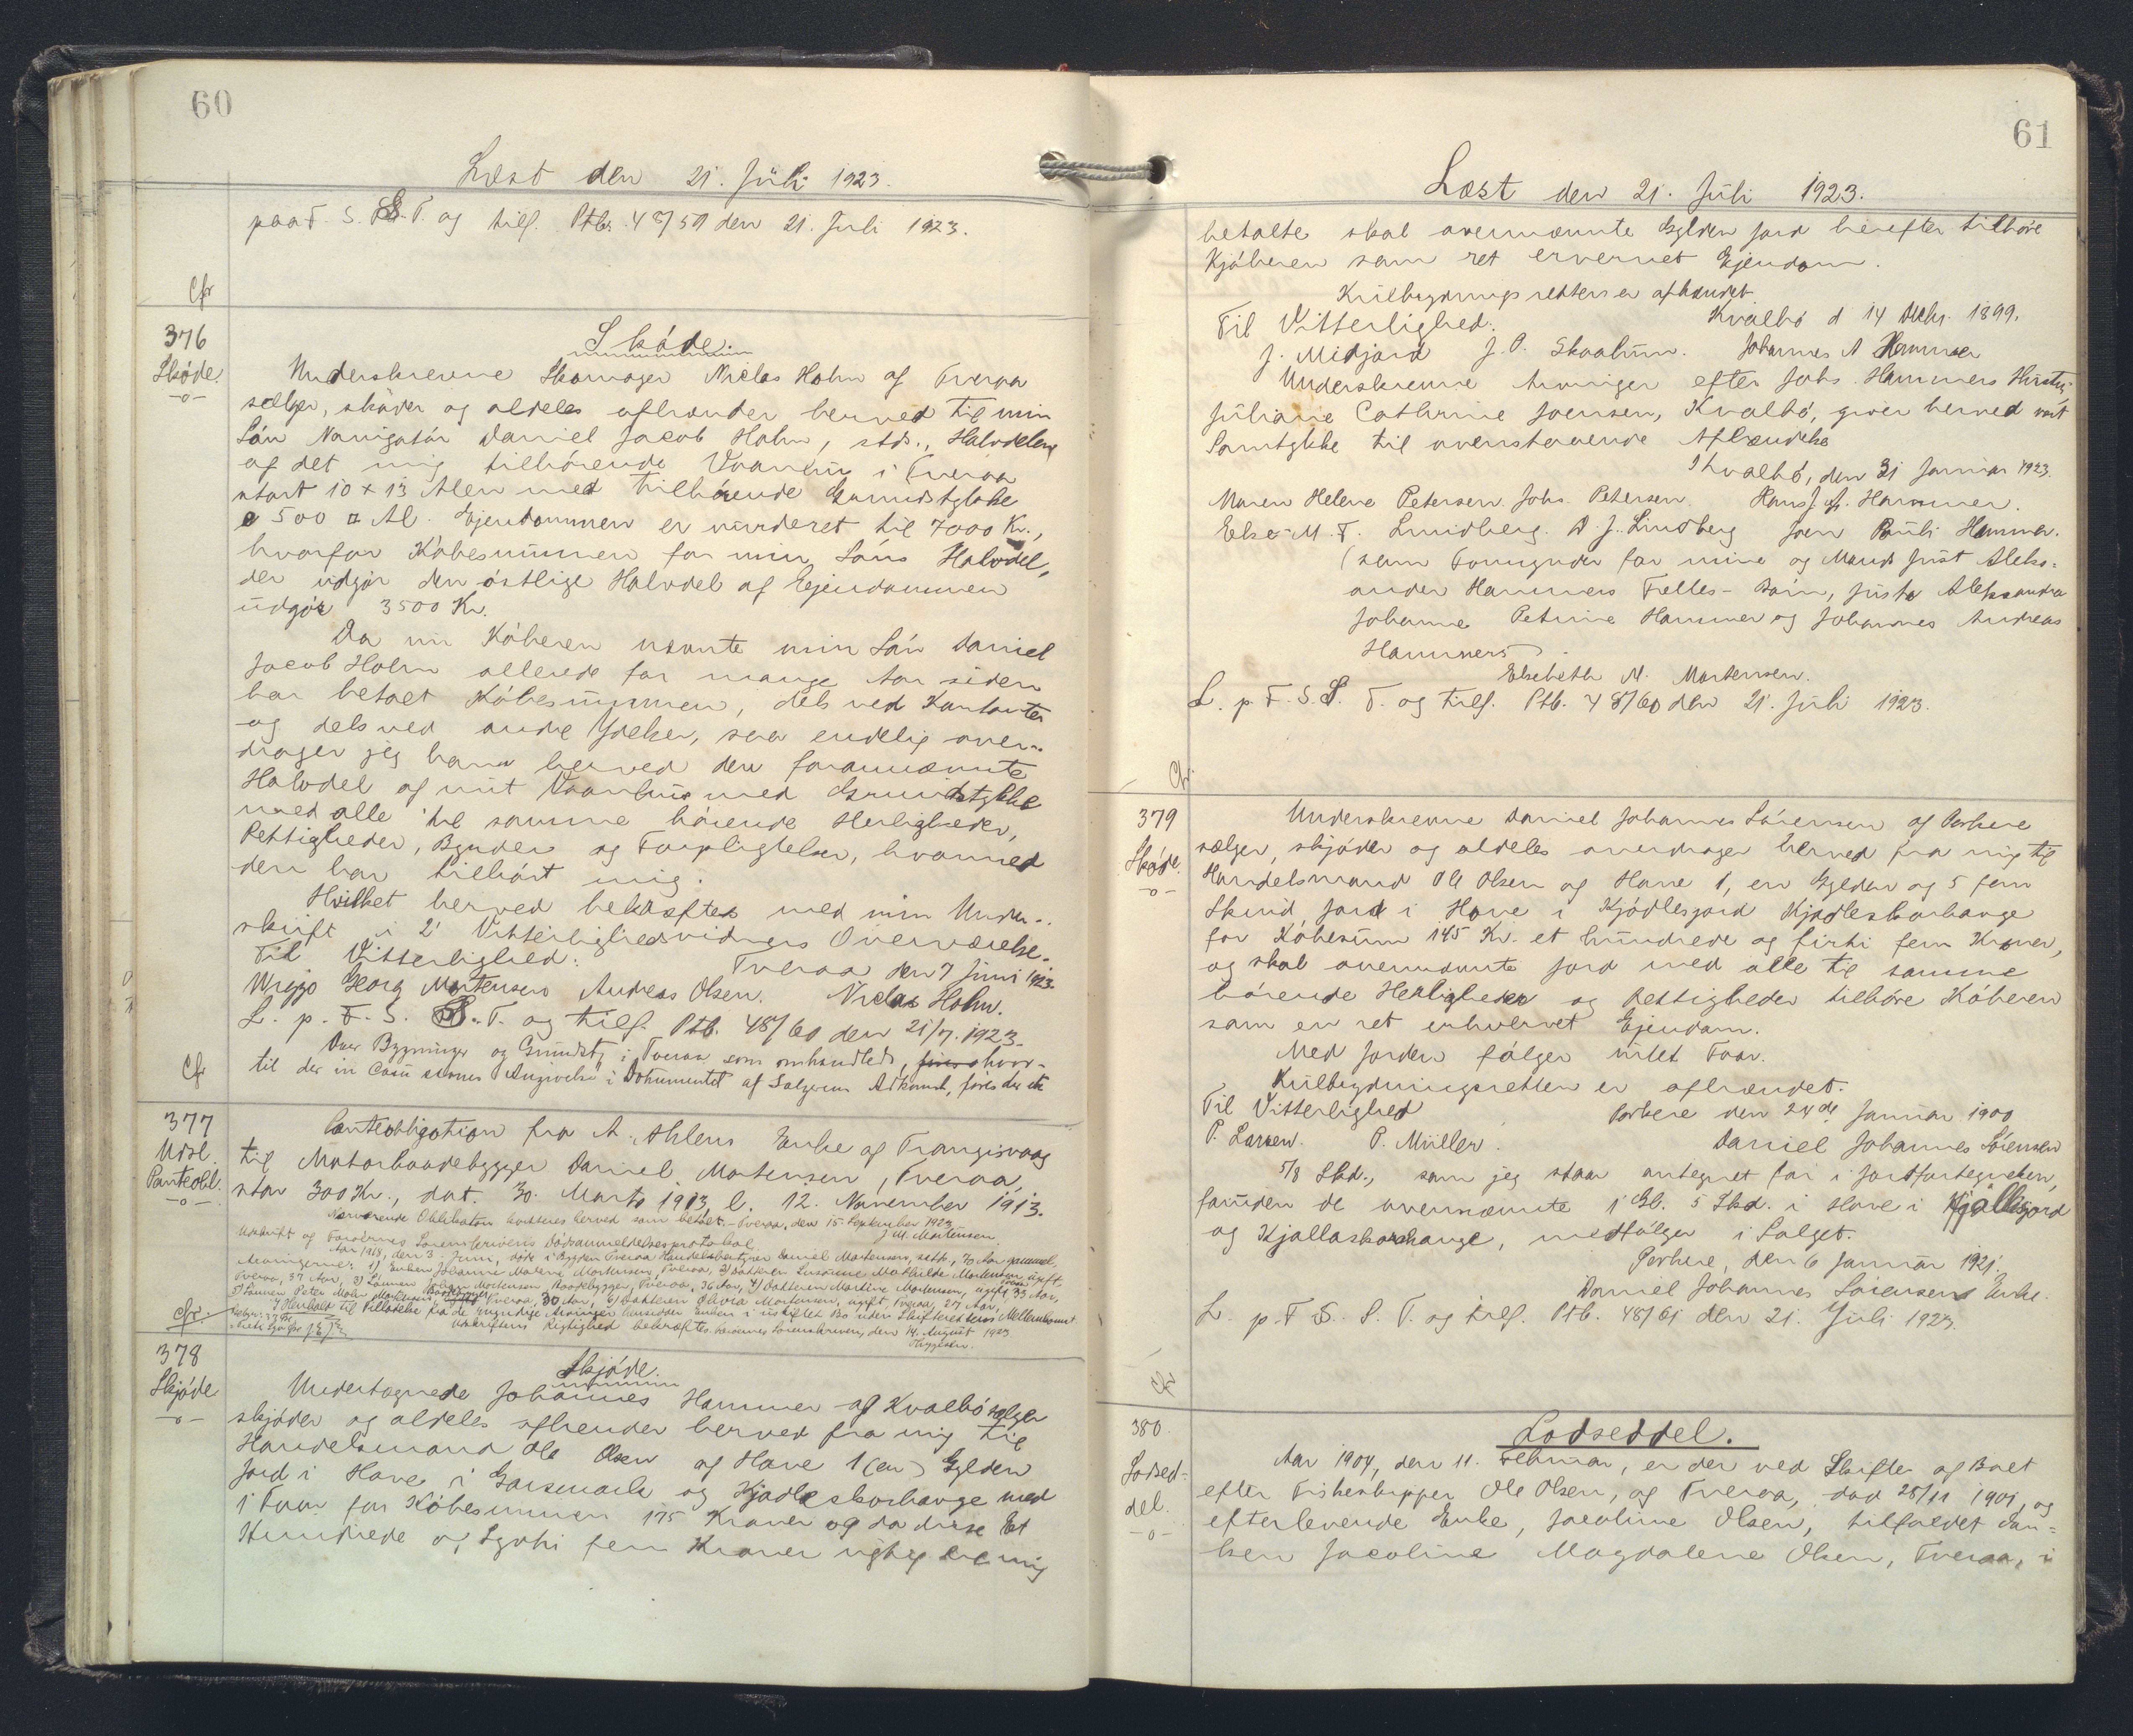 60
Læst den 21. Juli 1923.
paa T. S. S. T. og tilf. Ptb. 48/59 den 21. Juli 1923.
Cfr
376
Skøde.
Skøde.
Underskrevne Skomager Niclas Holm af Tveraa
sælger, skøder og aldeles afhænder herved til min
Søn Navigatør Daniel Jacob Holm, stds., Halvdelen
af det mig tilhørende Vaanhus i Tveraa
stort 10 x 13 Alen med tilhørende Grundstykke
c 500 □ Al. Ejendommen er vurderet til 7000 Kr.,
hvorfor Købesummen for min Søns Halvdel,
der udgør den østlige Halvdel af Ejendommen
udgør 3500 Kr.
Da nu Køberen nævnte min Søn Daniel
Jacob Holm allerede for mange Aar siden
har betalt Købesummen, dels ved Kontanter
og dels ved andre Ydelser, saa endelig over-
drager jeg ham herved den forannævnte
Halvdel af mit Vaanhus med Grundstykke
med alle til samme hørende Herligheder,
Rettigheder, Byrder og Forpligtelser, hvormed
den har tilhørt mig.
Hvilket herved bekræftes med min Under-
skrift i 2 Vitterlighedsvidners Overværelse.
Til Vitterlighed: Tveraa den 7 Juni 1923.
Wiggo Georg Mortensen Andreas Olsen. Niclas Holm.
L. p. T. S. S. T. og tilf. Ptb. 48/60 den 21/7. 1923.
Over Bygninger og Grundstk i Tveraa som omhandlede, hvor-
til der in Casu savnes Angivelse i Dokumentet af Sælgerens Adkomst, føres der ik
Cfr
377
Udsl.
Panteobl.
Panteobligation fra A. Ahlens Enke af Trangisvaag
til Motorbaadebygger Daniel Mortensen, Tveraa,
stor 300 Kr., dat. 30. Marts 1913, l. 12. November 1913.
Nærværende Obligation kvitteres herved som betalt. - Tveraa, den 15. September 1923
J M. Mortensen.
Udskrift af Færøernes Sorenskriveris Dødsanmeldelsesprotokol
Aar 1918, den 3. Juni, døde i Bygden Tveraa Handelsbestyrer Daniel Mortensen, sstds., 70 Aar gammel.
Arvingerne: 1) Enken Johanne Malene Mortensen, Tveraa, 2) Datteren Susanne Mathilde Mortensen, ugift
Tveraa, 37 Aar, 3) Sønnen Johan Mortensen, Baadebygger, Tveraa, 36 Aar, 4) Datteren Martine Mortensen, ugift, 33 Aar,
5) Sønnen Peter Mohr Mortensen, Baadebygger, Tveraa, 30 Aar, 6) Datteren Olivia Mortensen, ugift, Tveraa, 27 Aar,
I Henhold til Tilladelse fra de myndige Arvinger hensidder Enken i uskiftet Bo uden Skifterettens Mellemkomst.
Udskriftens Rigtighed bekræftes. Færøernes Sorenskriveri, den 14. August 1923
cfr.
378
Skjøde
Skjøde.
Undertegnede Johannes Hammer af Kvalbø sælger
skjøder og aldeles afhender herved fra mig til
Handelsmand Ole Olsen af Hove 1 (en) Gylden
Jord i Hove i Garsmark og Kjadleskorhauge med
1 Faar for Købesummen 175 Kroner og da disse Et
Hundrede og Sgvti fem Kroner rigtig ere mig
61
Læst den 21. Juli 1923.
betalte skal ovennævnte Gylden Jord herefter tilhøre
Kjøberen som ret ervervet Ejendom.
Kulbrydningsretten er afhændet.
Til Vitterlighed: Kvalbø d 14 Decbr. 1899.
J. Midjord J. P. Skaalum. Johannes A Hammer
Underskrevne Arvinger efter Johs. Hammers Hustru
Juliane Cathrine Joensen, Kvalbø, giver herved vort
Samtykke til ovenstaaende Afhændelse
Thvalbø, den 31 Januar 1923.
Maren Helene Petersen. Johs. Petersen. Hans J. A. Hammer.
Else M. F. Lindberg. D. J. Lindberg Joen Pauli Hammer.
(som Formynder for mine og Mand Just Aleks-
ander Hammers Fælles-Børn, Justa Aleksandra
Johanne Petrine Hammer og Johannes Andreas
Hammers)
Elsebeth M. Mortensen.
L. p. T. S. S. T. og tilf. Ptb. 48/60 den 21. Juli 1923.
Cfr.
379
Skøde.
Underskrevne Daniel Johannes Sørensen af Porkere
sælger, skjøder og aldeles overdrager herved fra mig til
Handelsmand Ole Olsen af Hove 1, en Gylden og 5 fem
Skind Jord i Hove i Kjødlesgard Kjadleskorhauge
for Købesum 145 Kr. et hundrede og firti fem Kroner,
og skal ovennævnte Jord med alle til samme
hørende Herligheder og Rettigheder tilhøre Køberen
som en ret erhvervet Ejendom.
Med Jorden følger intet Faar.
Kulbrydningsretten er afhændet.
Til Vitterlighed Porkere den 24de Januar 1900
P. Larsen. P. Müller. Daniel Johannes Sørensen
5/8 Skd., som jeg staar antegnet for i Jordfortegnelsen,
foruden de ovennævnte 1 Gl. 5 Skd. i Hove i Kjallisgard
og Kjallaskorhauge, medfølger i Salget.
Porkere, den 6 Januar 1921.
Daniel Johannes Sørensens Enke.
L. p. T. S. S. T. og tilf. Ptb. 48/61 den 21. Juli 1923.
Cfr
380
Lodsed-
del.
Lodseddel.
Aar 1904, den 11. Februar, er der ved Skifte af Boet
efter Fiskeskipper Ole Olsen, af Tveraa, død 28/11 1901, og
efterlevende Enke, Jacoline Olsen, tilfaldet En-
ken Jacoline Magdalene Olsen, Tveraa, i